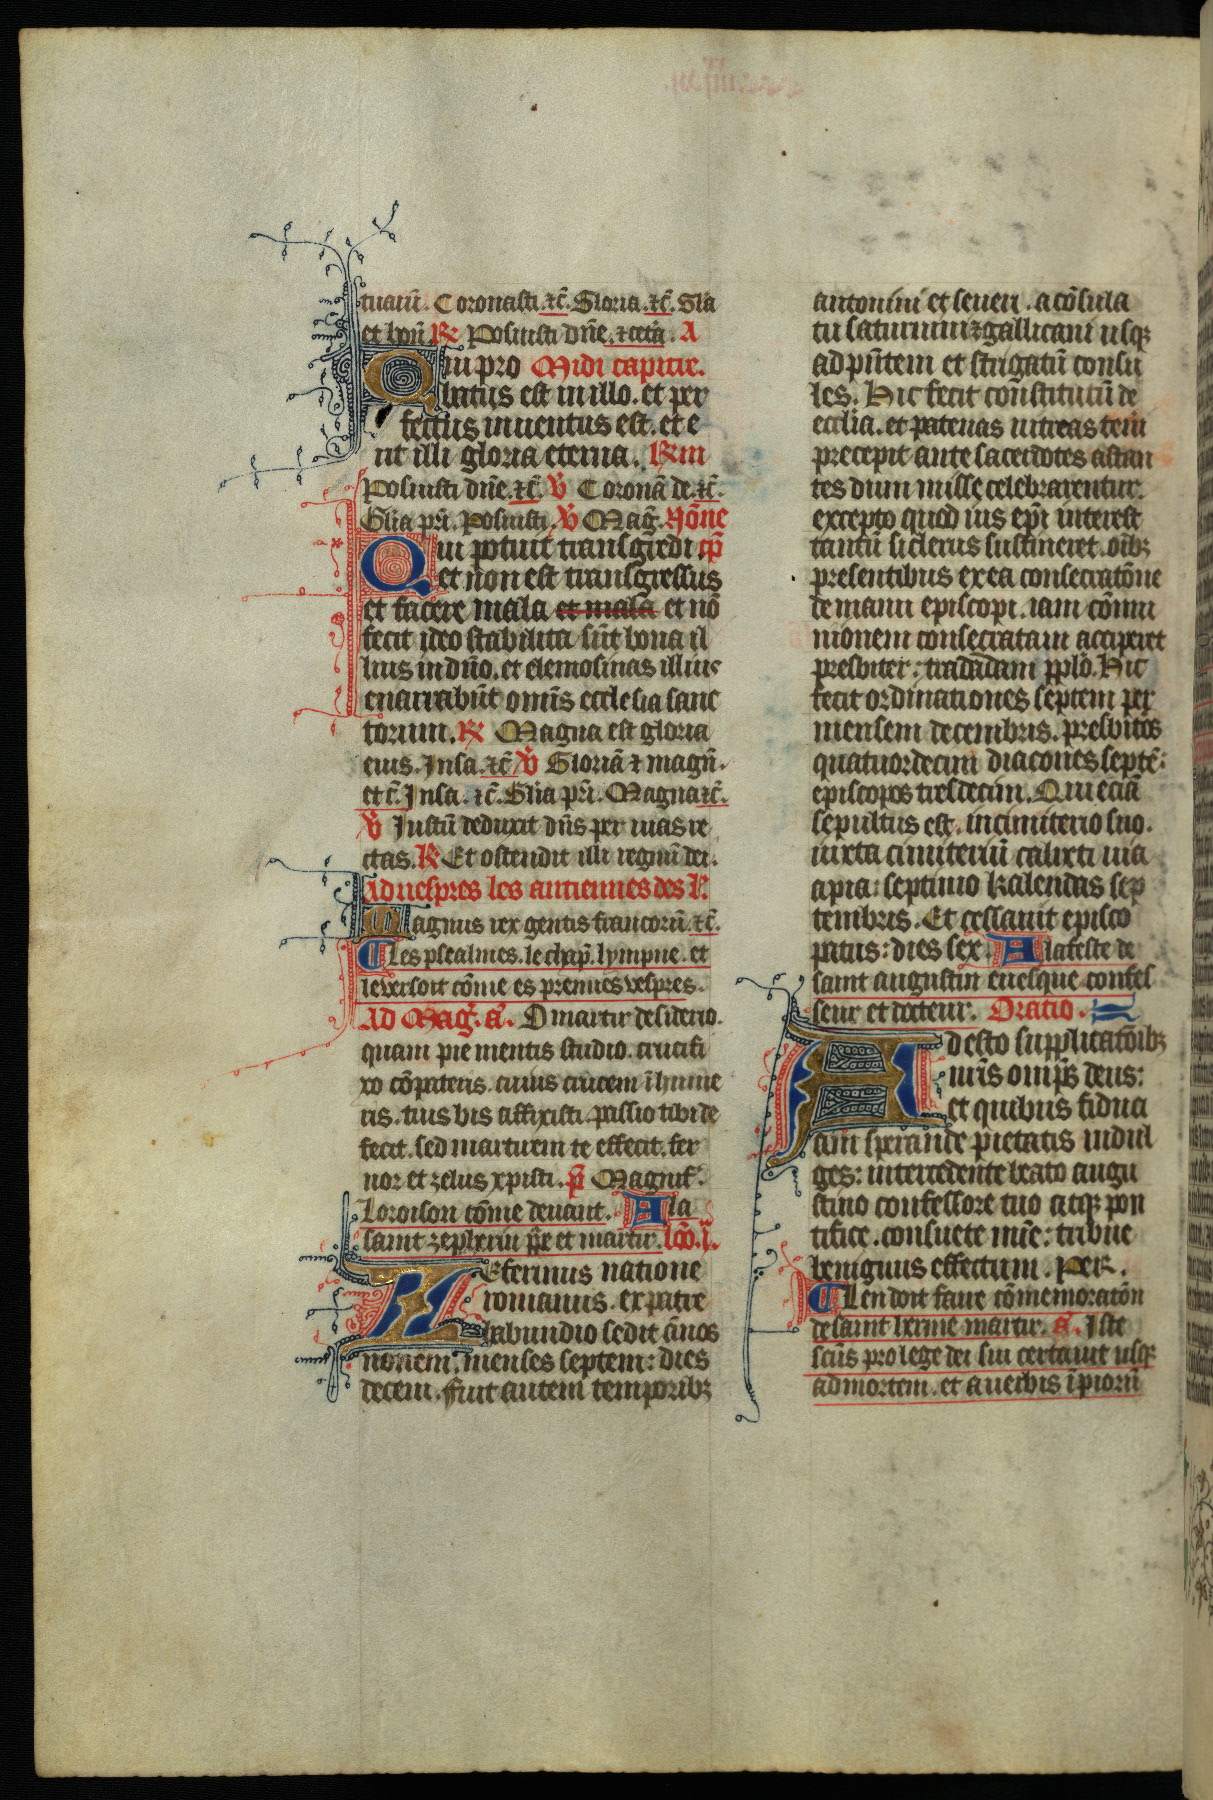 tuarū. Coronasti. ⁊c̄. Gloria. ⁊c̄. Gla
et hon̄. R Posuisti dn̄e. ⁊ cetā. A
Qui pro Midi capitre.
batus est in illo. et per
fectus inuentus est. et e
rit illi gloria eterna. R m
Posuisti dn̄e. ⁊c̄. V Coronā de. ⁊c̄.
Glia pr̄i. Posuisti. V Mag̃. Nōne
Qui potuit transgredi cp̄
et non est transgressus
et facere mala et mala et nō
fecit ideo stabilita sūt bona il
lius in dn̄o. et elemosinas illius
enarrabūt omīs ecclesia sanc
torum. R Magna est gloria
eius. In sa. ⁊c̄. V Gloriā ⁊ magn̄.
et c̄. In sa. ⁊c̄. Glia pr̄i. Magna ⁊c̄.
V Iustū deduxit dn̄s per uias re
ctas. R Et ostendit illi regnū dei.
Ad uespres les antiennes des l'.
Magnus rex gentis francorū. ⁊c̄.
Les psealmes. le chap̄. lympne. et
le versoit cōme es premies vespres.
Ad Mag̃. a. O martir desiderio.
quam pie mentis studio. crucifi
xo cōpateris. cuius crucem īhume
ris. tuis bis affixisti. passio tibi de
fecit. sed marturem te effecit. fer
uor et zelus xpisti. p̄ Magnif̄.
Loroison cōme deuant. A la
saint zepherin ppe et martir. lcō. i.
Zeferinus natione
romanus. ex patre
habundio sedit ānos
nonem. menses septem: dies
decem. Fuit autem temporibꝫ
antonini et seueri. a cōsula
tu saturnini ⁊ gallicani usqꝫ
ad pn̄tem et strigatū consu
les. Hic fecit constitutū de
ecclia. et patenas uitreas
precepit ante sacerdotes astan
tes dum misse celebrarentur.
excepto quod ius epi interest
tantū si clerus sustineret. oībꝫ
presentibus ex ea consecratōne
de manu episcopi. iam cōmu
nionem consecratam acciperet
presbiter: tradadam pplo. Hic
fecit ordinationes septem per
mensem decembris. presbitos
quatuordecim diacones septē:
episcopos tresdecim. Qui eciā
sepultus est. in cimiterio suo.
iuxta cimiteriū calixti uia
apia: septimo kalendas sep
tembris. Et cessauit episco
patus: dies sex. A la feste de
saint augustin euesque confes
seur et docteur. Oratio.
Adesto supplicatōibꝫ
nr̄is omps deus:
et quibus fiduci
am sperande pietatis indul
ges: intercedente beato augu
stino confessore tuo atqꝫ pon
tifice. consuete mīe: tribue
benignus effectum. Per.
Len doit faire cōmemoratōn
de saint herme martir. a. Iste
scūs pro lege dei sui certauit usqꝫ
ad mortem. et a uerbis īpiorū